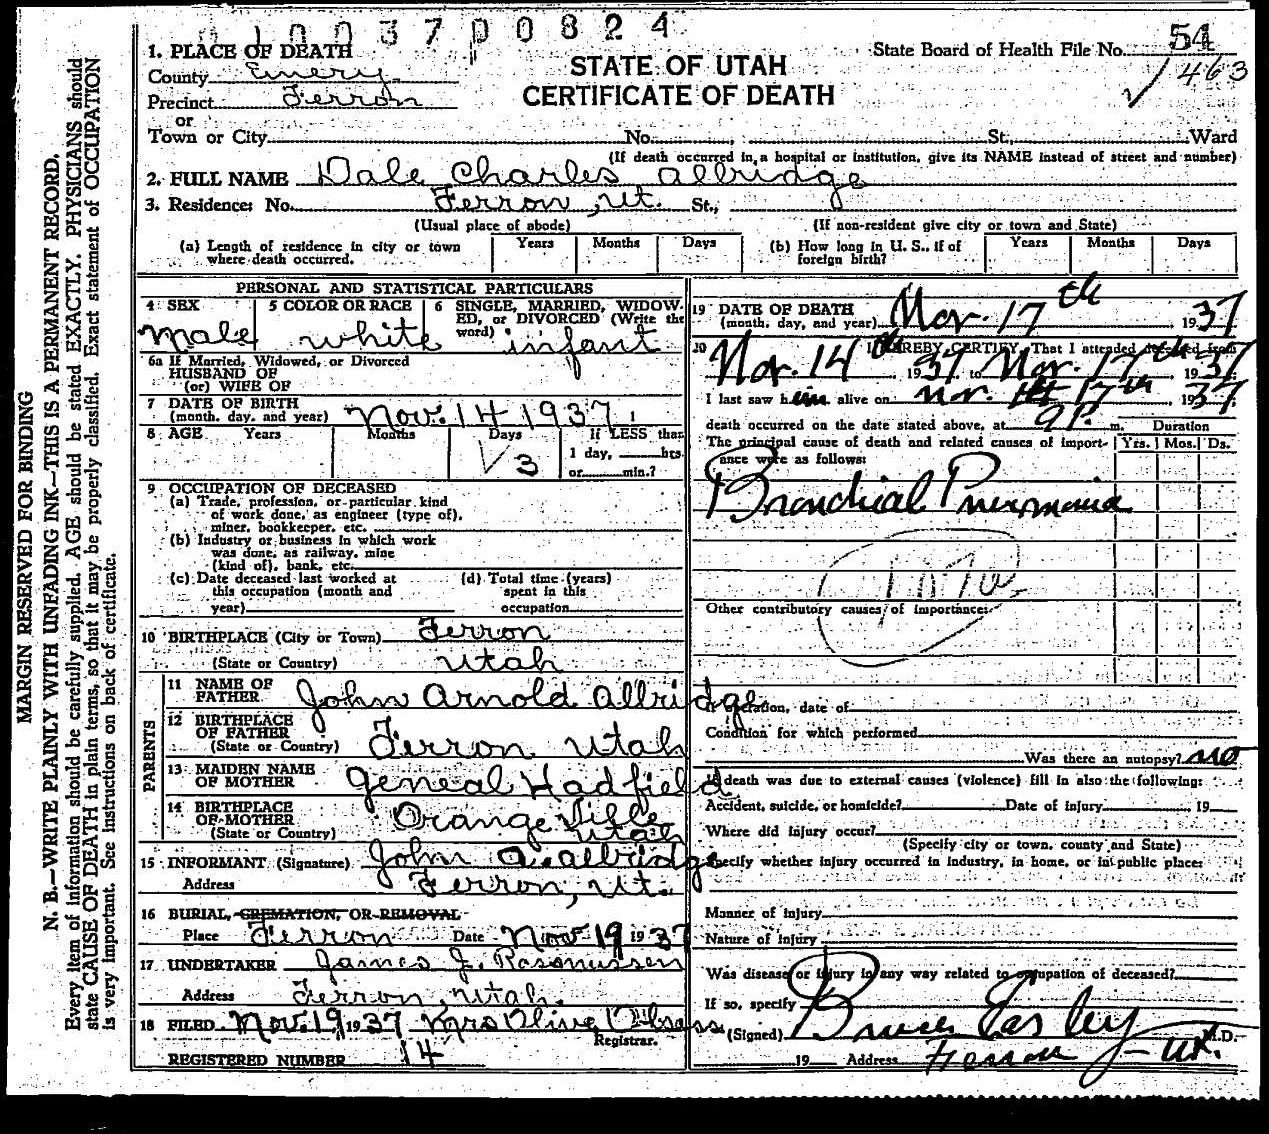 0037 00824
1. PLACE OF DEATH
County Emery
Precinct Ferron
or
Town or City No. , St., Ward
State Board of Health File No. 54
463
STATE OF UTAH
CERTIFICATE OF DEATH
(If death occurred in a hospital or institution, give its NAME instead of street and number)
2. FULL NAME Dale Charles Allridge
3. Residence: No. Ferron, Ut. St.,
(Usual place of abode) (If non-resident give city or town and State)
(a) Length of residence in city or town where death occurred. Years Months Days
(b) How long in U. S., if of foreign birth? Years Months Days
PERSONAL AND STATISTICAL PARTICULARS
4 SEX Male
5 COLOR OR RACE White
6 SINGLE, MARRIED, WIDOWED, or DIVORCED (Write the word) infant
6a If Married, Widowed, or Divorced
HUSBAND OF
(or) WIFE OF
7 DATE OF BIRTH
(month, day, and year) Nov. 14 1937
8 AGE Years Months Days 3
If LESS than
1 day, hrs.
or min.?
9 OCCUPATION OF DECEASED
(a) Trade, profession, or particular kind
of work done, as engineer (type of),
miner, bookkeeper, etc.
(b) Industry or business in which work
was done, as railway, mine
(kind of), bank, etc.
(c) Date deceased last worked at
this occupation (month and
year)
(d) Total time (years)
spent in this
occupation
10 BIRTHPLACE (City or Town) Ferron
(State or Country) Utah
PARENTS
11 NAME OF FATHER John Arnold Allridge
12 BIRTHPLACE OF FATHER
(State or Country) Ferron Utah
13 MAIDEN NAME OF MOTHER Geneal Hadfield
14 BIRTHPLACE OF MOTHER
(State or Country) Orangeville Utah
15 INFORMANT (Signature) John A. Allridge
Address Ferron, Ut.
16 BURIAL, CREMATION, OR REMOVAL
Place Ferron Date Nov 19 1937
17 UNDERTAKER James J. Rasmussen
Address Ferron, Utah.
18 FILED Nov. 19 1937 Mrs Olive
Registrar.
REGISTERED NUMBER 14
19 DATE OF DEATH
(month, day, and year) Nov. 17th 1937
20 I HEREBY CERTIFY, That I attended deceased from
Nov. 14th 1937 to Nov. 17th 1937
I last saw him alive on Nov. 14 17th 1937
death occurred on the date stated above, at 9 P. m. Duration
The principal cause of death and related causes of importance were as follows: Yrs. Mos. Ds.
Bronchial Pneumonia
107a
Other contributory causes of importance:
If operation, date of
Condition for which performed
Was there an autopsy? no
If death was due to external causes (violence) fill in also the following:
Accident, suicide, or homicide? Date of injury , 19
Where did injury occur?
(Specify city or town, county and State)
Specify whether injury occurred in industry, in home, or in public place:
Manner of injury
Nature of injury
Was disease or injury in any way related to occupation of deceased?
If so, specify
(Signed) Bruce Easley M.D.
19 Address Ferron - Ut.
MARGIN RESERVED FOR BINDING
N. B.—WRITE PLAINLY WITH UNFADING INK—THIS IS A PERMANENT RECORD.
Every item of information should be carefully supplied. AGE should be stated EXACTLY. PHYSICIANS should
state CAUSE OF DEATH in plain terms, so that it may be properly classified. Exact statement of OCCUPATION
is very important. See instructions on back of certificate.